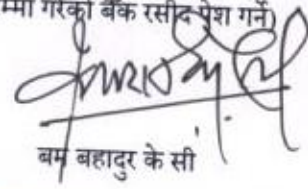 म्मा गरेको बैंक रसीद पेश गर्ने)
बम बहादुर के सी